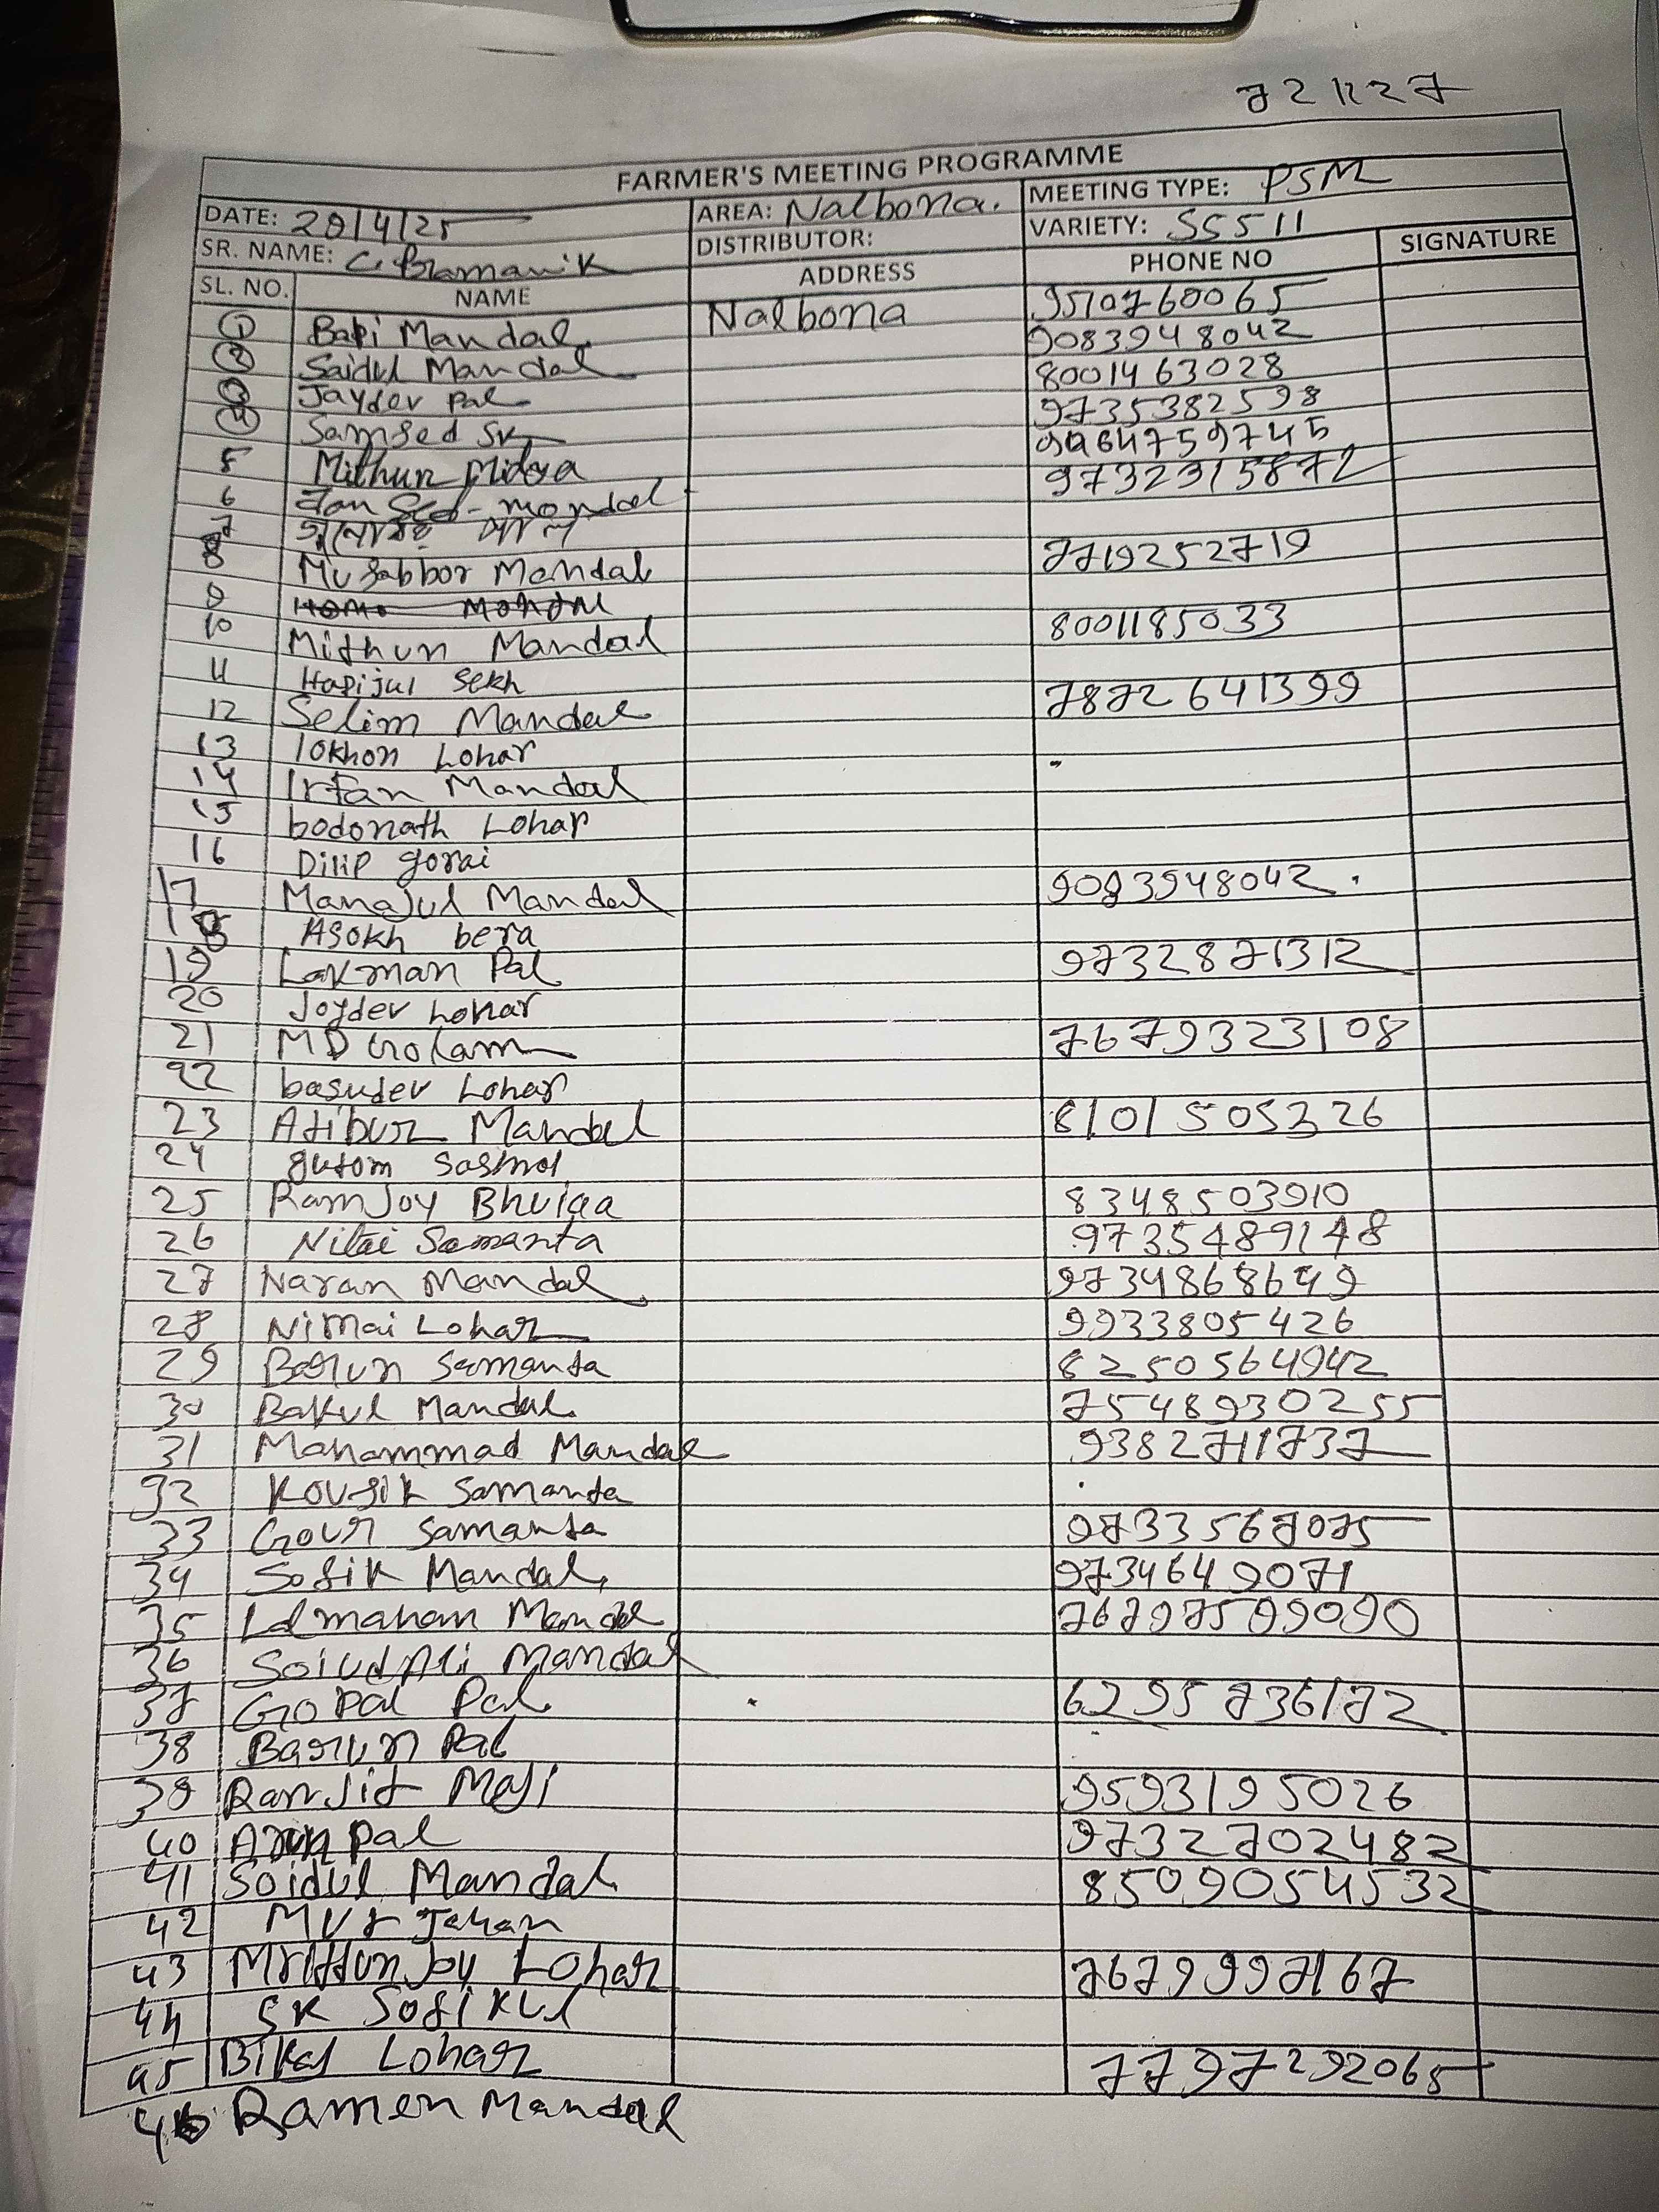 721127
FARMER'S MEETING PROGRAMME
DATE: 29/4/25 AREA: Nalbona. MEETING TYPE: PSM
SR. NAME: C. Pramanik DISTRIBUTOR: VARIETY: SS511
SL. NO. NAME ADDRESS PHONE NO SIGNATURE
1 Bapi Mandal Nalbona 9510760065
2 Saidul Mandal 9083948042
3 Jaydev Pal 8001463028
4 Samsed Sk 9735382598
5 Mithun Midya
6 mondal 9732315872
7 পাল
8 Musabbor Mondal 7719252719
9
10 Mithun Mandal 8001185033
11 Hapijul Sekh
12 Selim Mandal 7872641399
13 lokhon Lohar
14 Irfan Mandal
15 bodonath Lohar
16 Dilip gorai
17 Manajul Mandal 9083948042.
18 Asokh bera
19 Lakman Pal 9732871312
20 Joydev Lohar
21 MD Golam 7679323108
22 basudev Lohar
23 Atibur Mandal 8101505326
24 gutom Sasmol
25 RamJoy Bhuiaa 8348503910
26 Nitai Samanta 9735489148
27 Naran Mandal 9734868649
28 Nimai Lohar 9933805426
29 Barun Samanta 8250564942
30 Bakul Mandal 7548930255
31 Mahammad Mandal 9382711737
32 Kousik Samanta
33 Gour Samanta 9733567075
34 Sofik Mandal 9734649071
35 Lalmaham Mandal 76797599090
36 Soiud Ali Mandal
37 Gopal Pal 6295736172
38 Barun Pal
39 Ranjit Maji 9593195026
40 Arun pal 9732702482
41 Soidul Mandal 8509054532
42 Jahan
43 Mrittunjoy Lohar 7679997167
44 SK Sofikul
45 Bikas Lohar 7797292065
46 Ramen Mandal